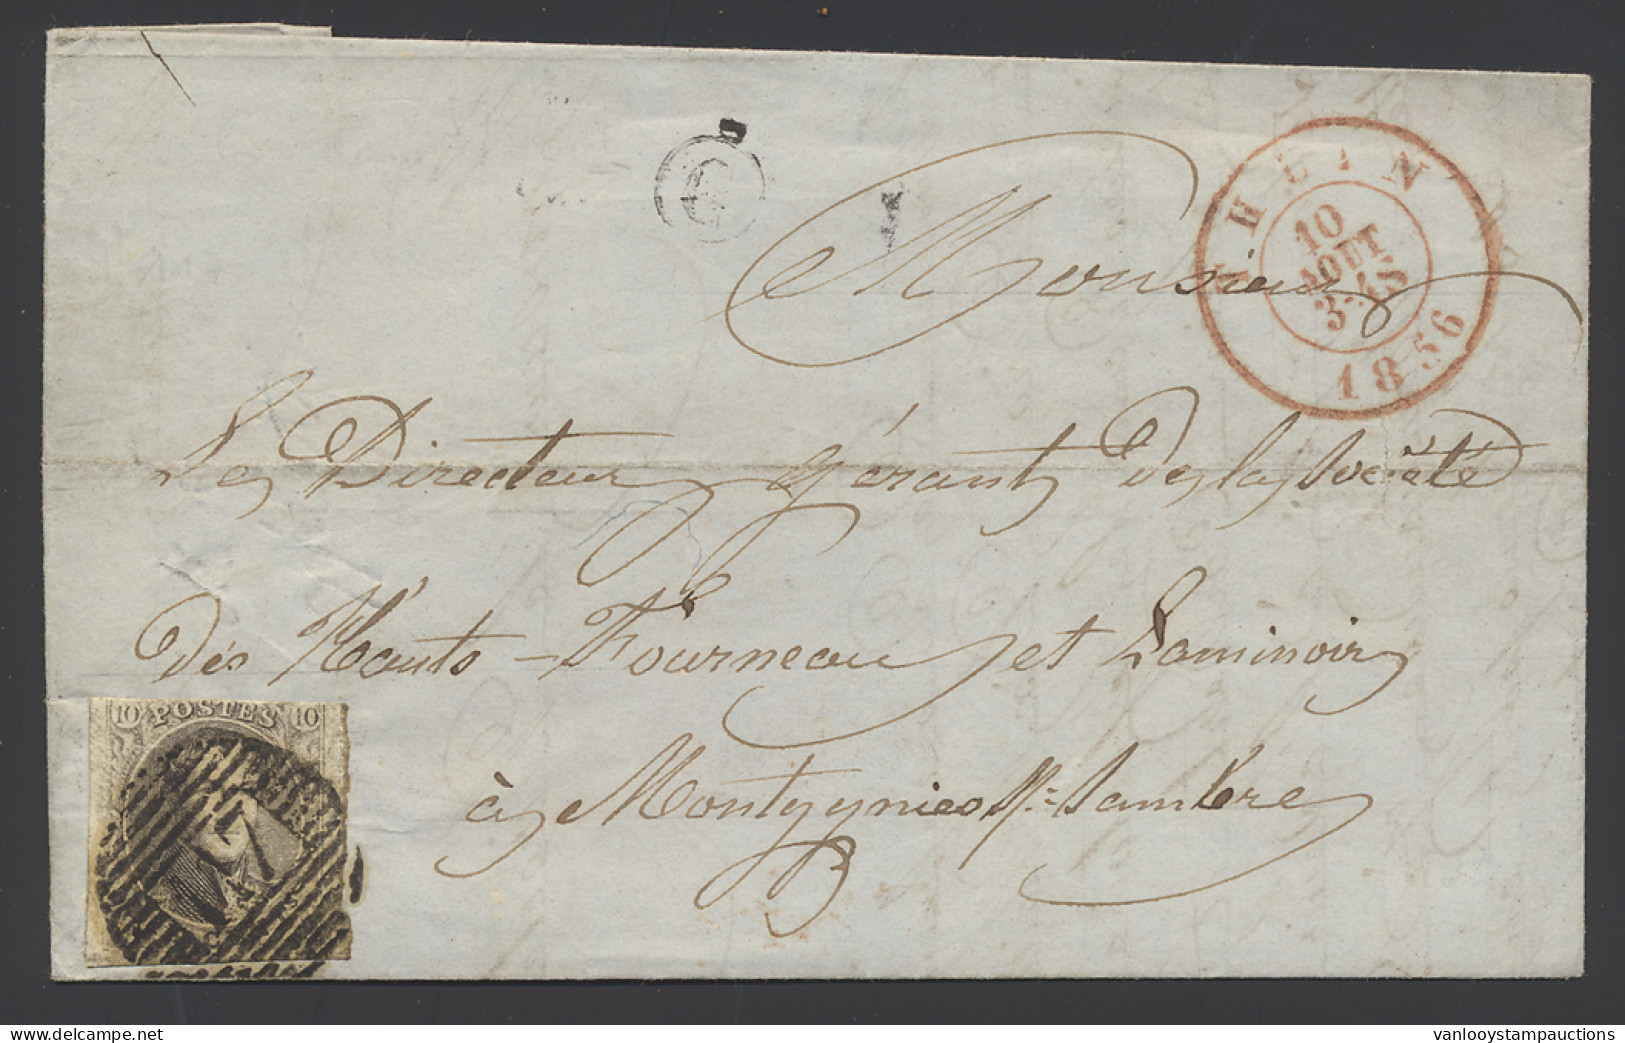 G
Monsieur
Sᵗ HUIN
10
AOUT
3-4S
1856
Le Directeur gérant de la Société
des Hauts-Fourneau et Laminoir
à Montygnies s/r: Sambre
10 POSTES 10
delcampe.net
vanlooystampauctions